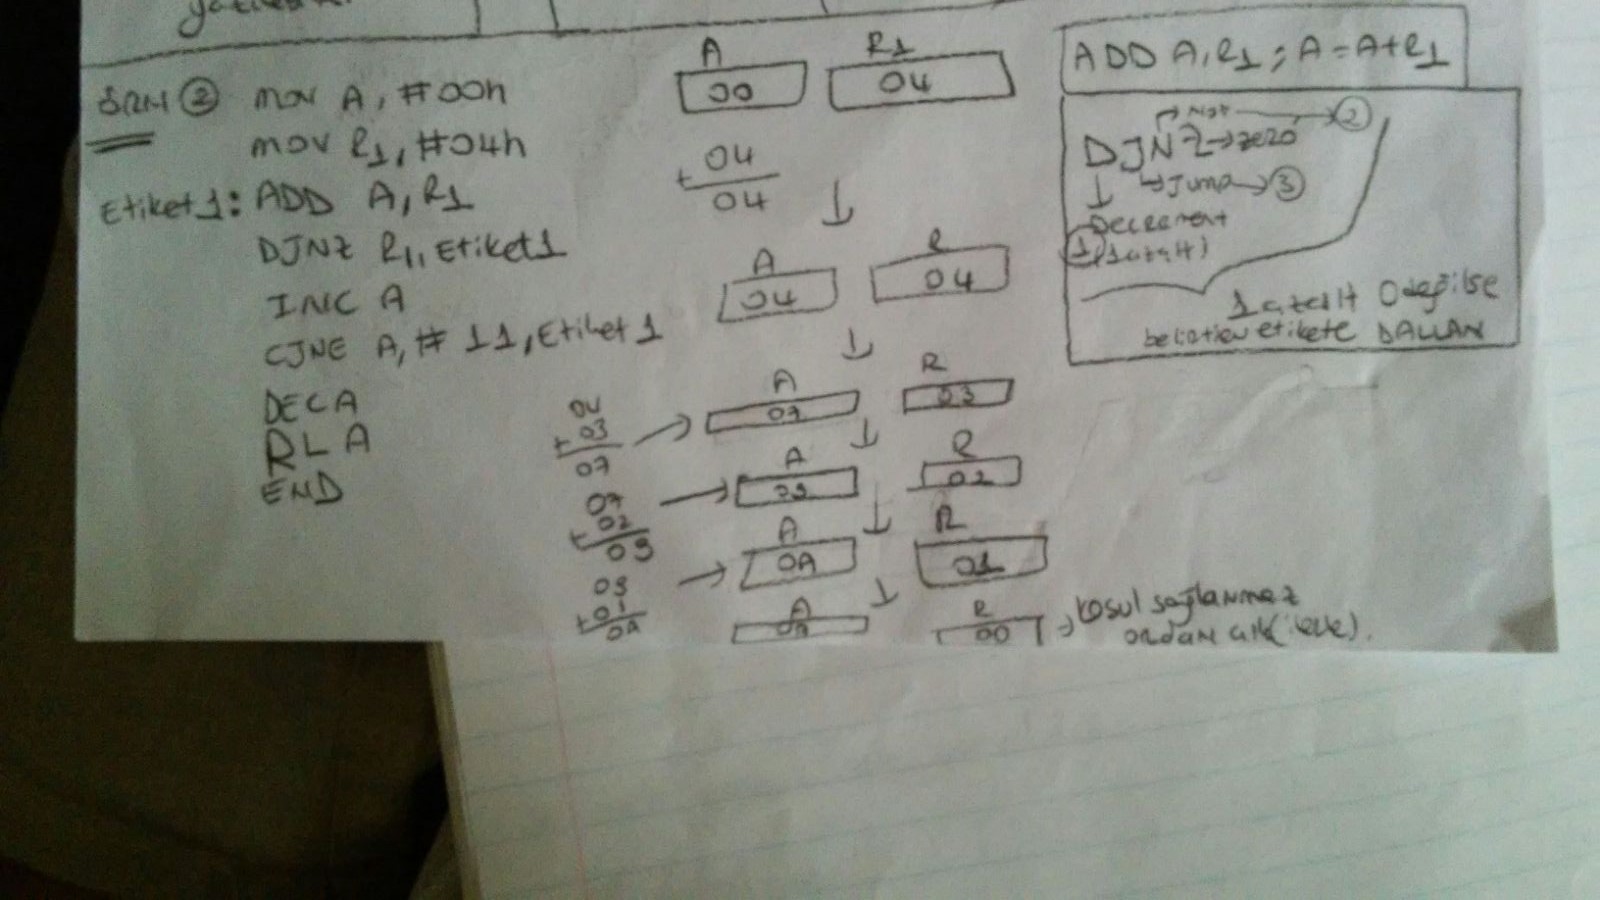 ÖRN ② mov A, #00h
mov R1, #04h
Etiket1: ADD A, R1
DJNZ R1, Etiket1
INC A
CJNE A, # 11, Etiket1
DEC A
RL A
END
A R1
00 04
04
+
04
A R
04 04
04
+ 03
07
A R
07 03
07
+ 02
09
A R
09 02
09
+ 01
0A
A R
0A 01
A R
0A 00
Koşul sağlanmaz
ordan çık
ADD A, R1 ; A = A+R1
Not ②
DJNZ → zero
↳ Jump → ③
Decrement
① (1 azalt)
1 azalt 0 değilse
belirtilen etikete DALLAN